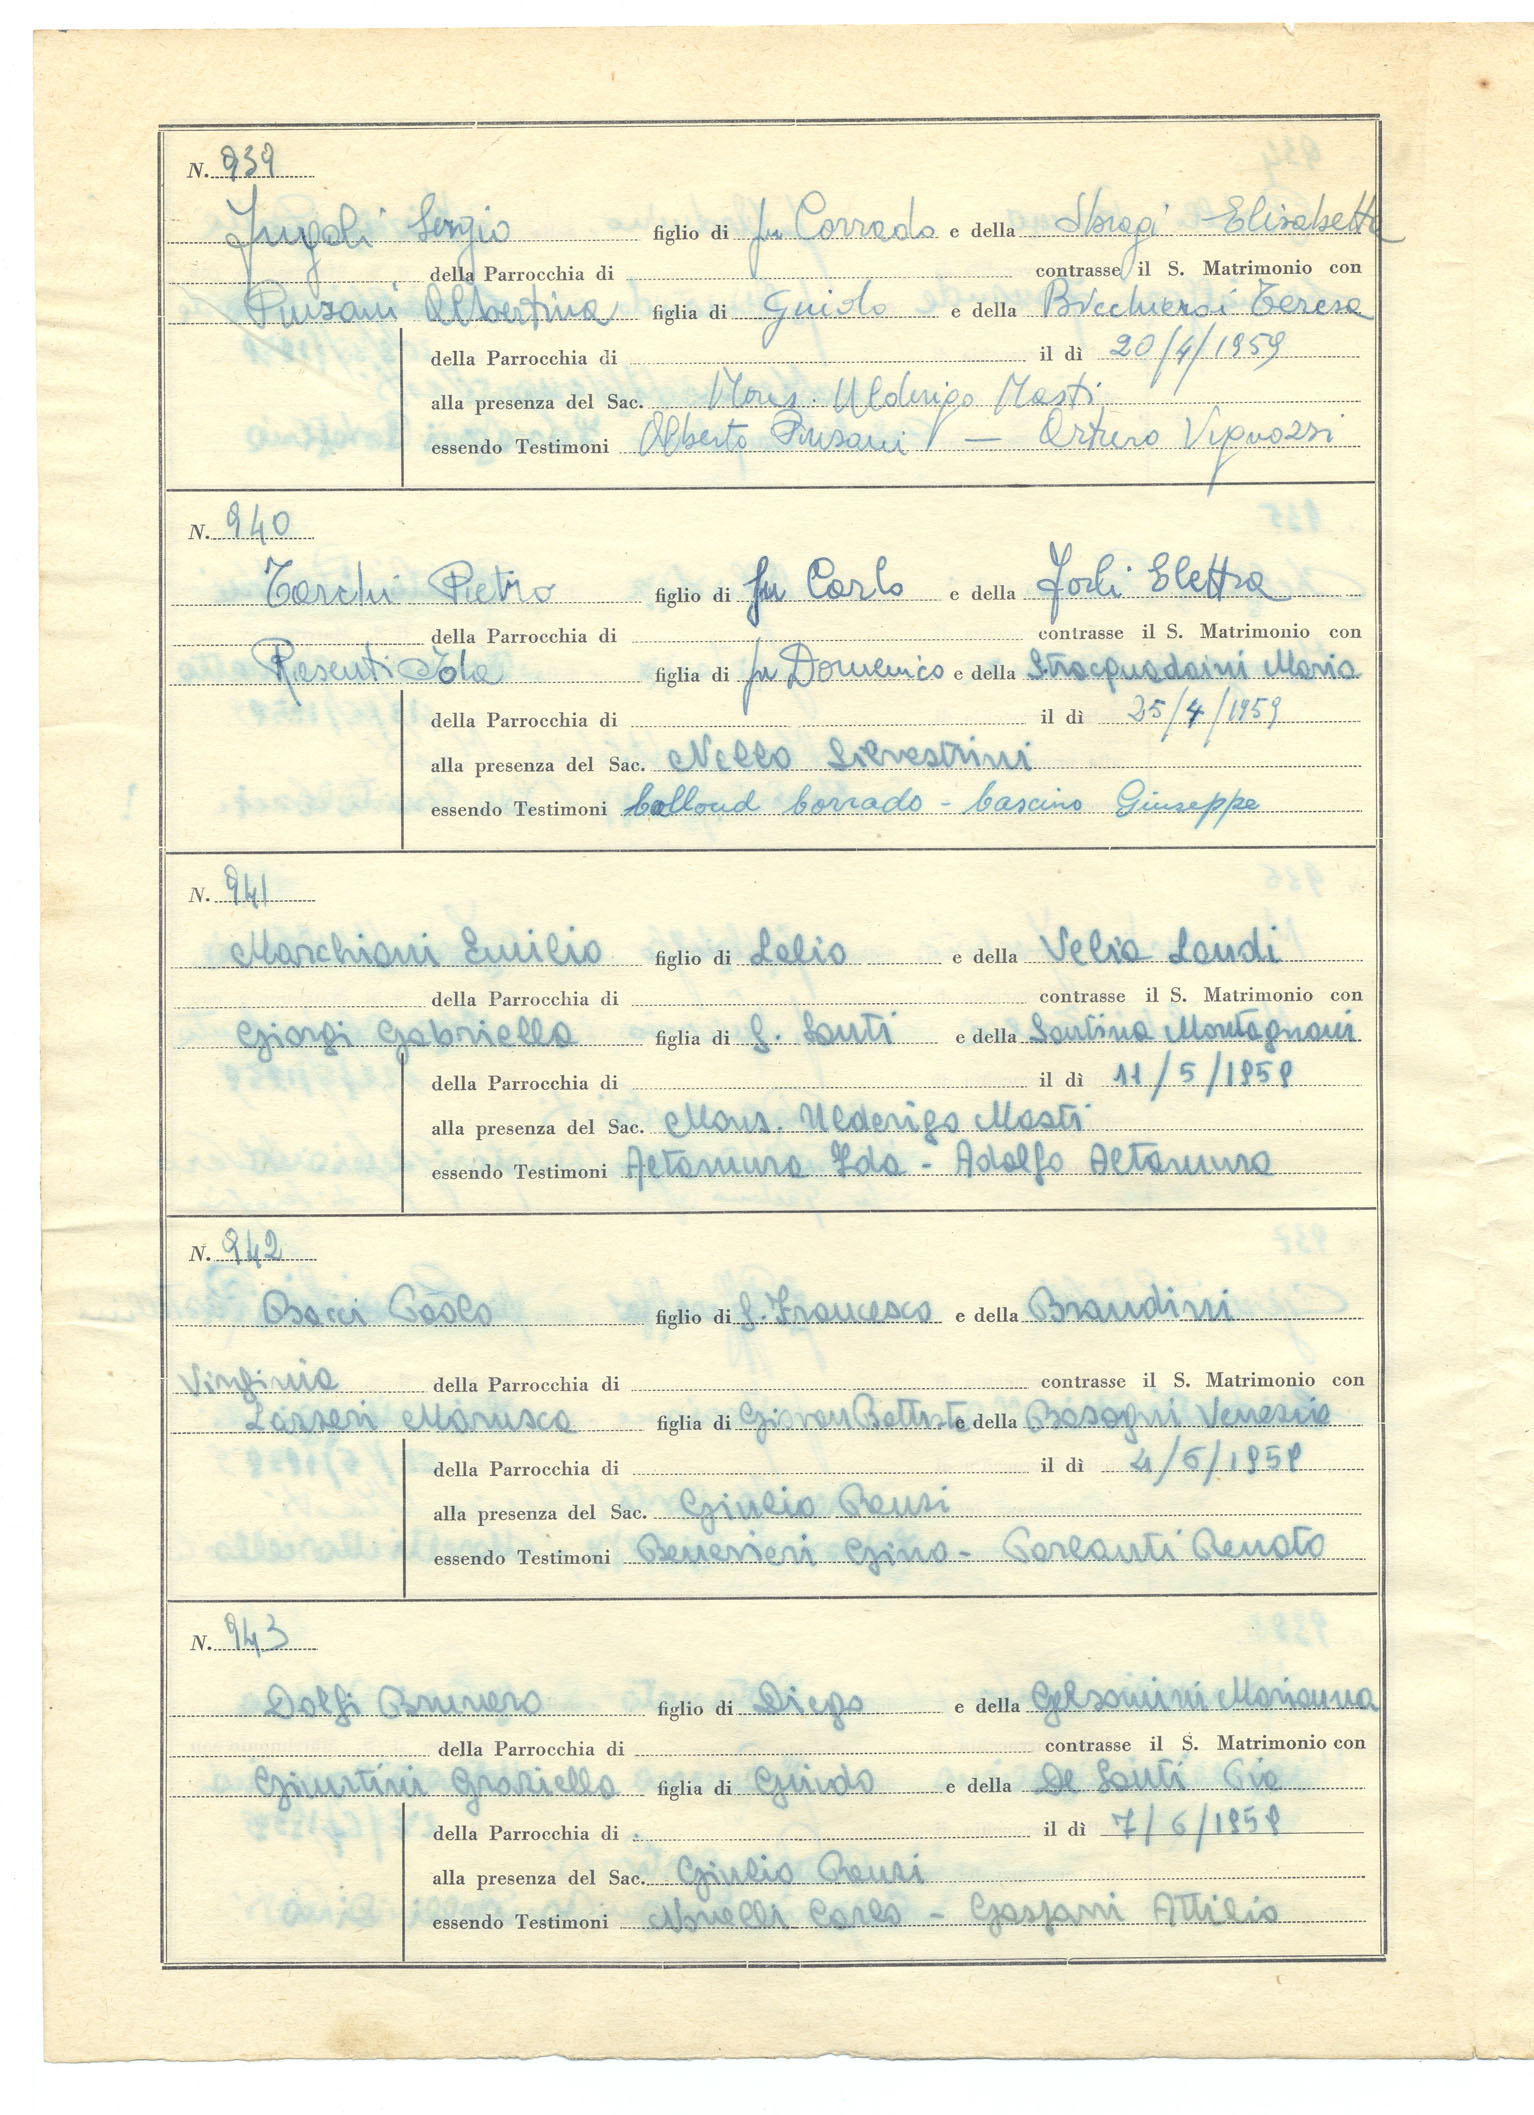 N. 939
Sergio figlio di fu Corrado e della Sbragi Elisabetta
della Parrocchia di contrasse il S. Matrimonio con
Pinzani Albertina figlia di Guido e della Bicchierai Teresa
della Parrocchia di il dì 20/4/1959
alla presenza del Sac. Mons. Ulderigo Masti
essendo Testimoni Alberto Pinzani — Arturo Vignozzi
N. 940
Tarchi Pietro figlio di fu Carlo e della Forli Elettra
della Parrocchia di contrasse il S. Matrimonio con
Resenti Ida figlia di fu Domenico e della Stracquadaini Maria
della Parrocchia di il dì 25/4/1959
alla presenza del Sac. Nello Silvestrini
essendo Testimoni Colloud Corrado - Cascino Giuseppe
N. 941
Marchiani Emilio figlio di Lelio e della Velia Landi
della Parrocchia di contrasse il S. Matrimonio con
Giorgi Gabriella figlia di G. Santi e della Santina Montagnani
della Parrocchia di il dì 11/5/1959
alla presenza del Sac. Mons. Ulderigo Masti
essendo Testimoni Altamura Ida - Adolfo Altamura
N. 942
Bacci Paolo figlio di G. Francesco e della Brandini
Virginia della Parrocchia di contrasse il S. Matrimonio con
Lazzeri Marusca figlia di Giovan Battista e della Basagni Venezia
della Parrocchia di il dì 4/6/1959
alla presenza del Sac. Giulio Renzi
essendo Testimoni Benevieri Gino - Parlanti Renato
N. 943
Dolfi Brunero figlio di Diego e della Gelsomini Marianna
della Parrocchia di contrasse il S. Matrimonio con
Giuntini Graziella figlia di Guido e della De Santi Pia
della Parrocchia di il dì 7/6/1959
alla presenza del Sac. Giulio Renzi
essendo Testimoni Novelli Carlo - Attilio